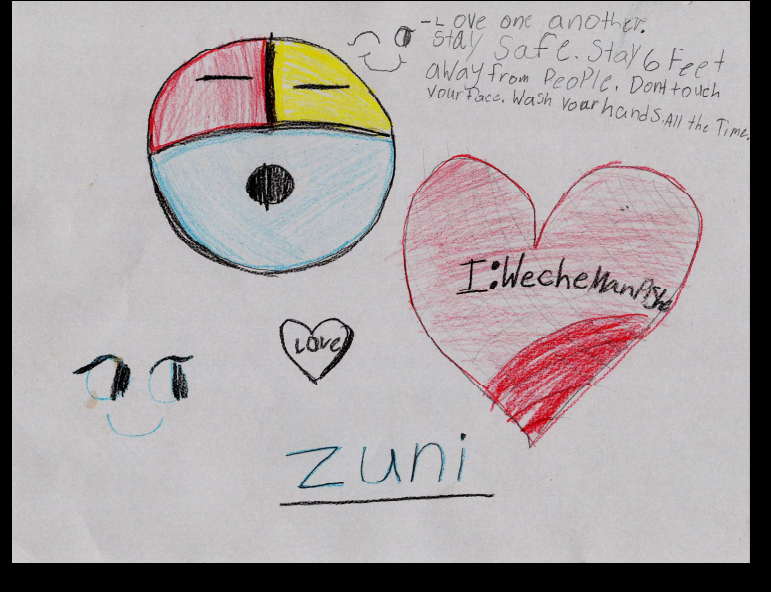 -Love one another.
Stay Safe. Stay 6 Feet
away from People. Dont touch
your Face. Wash your hands. All the Time.
I:WecheNanPshe
Love
Zuni